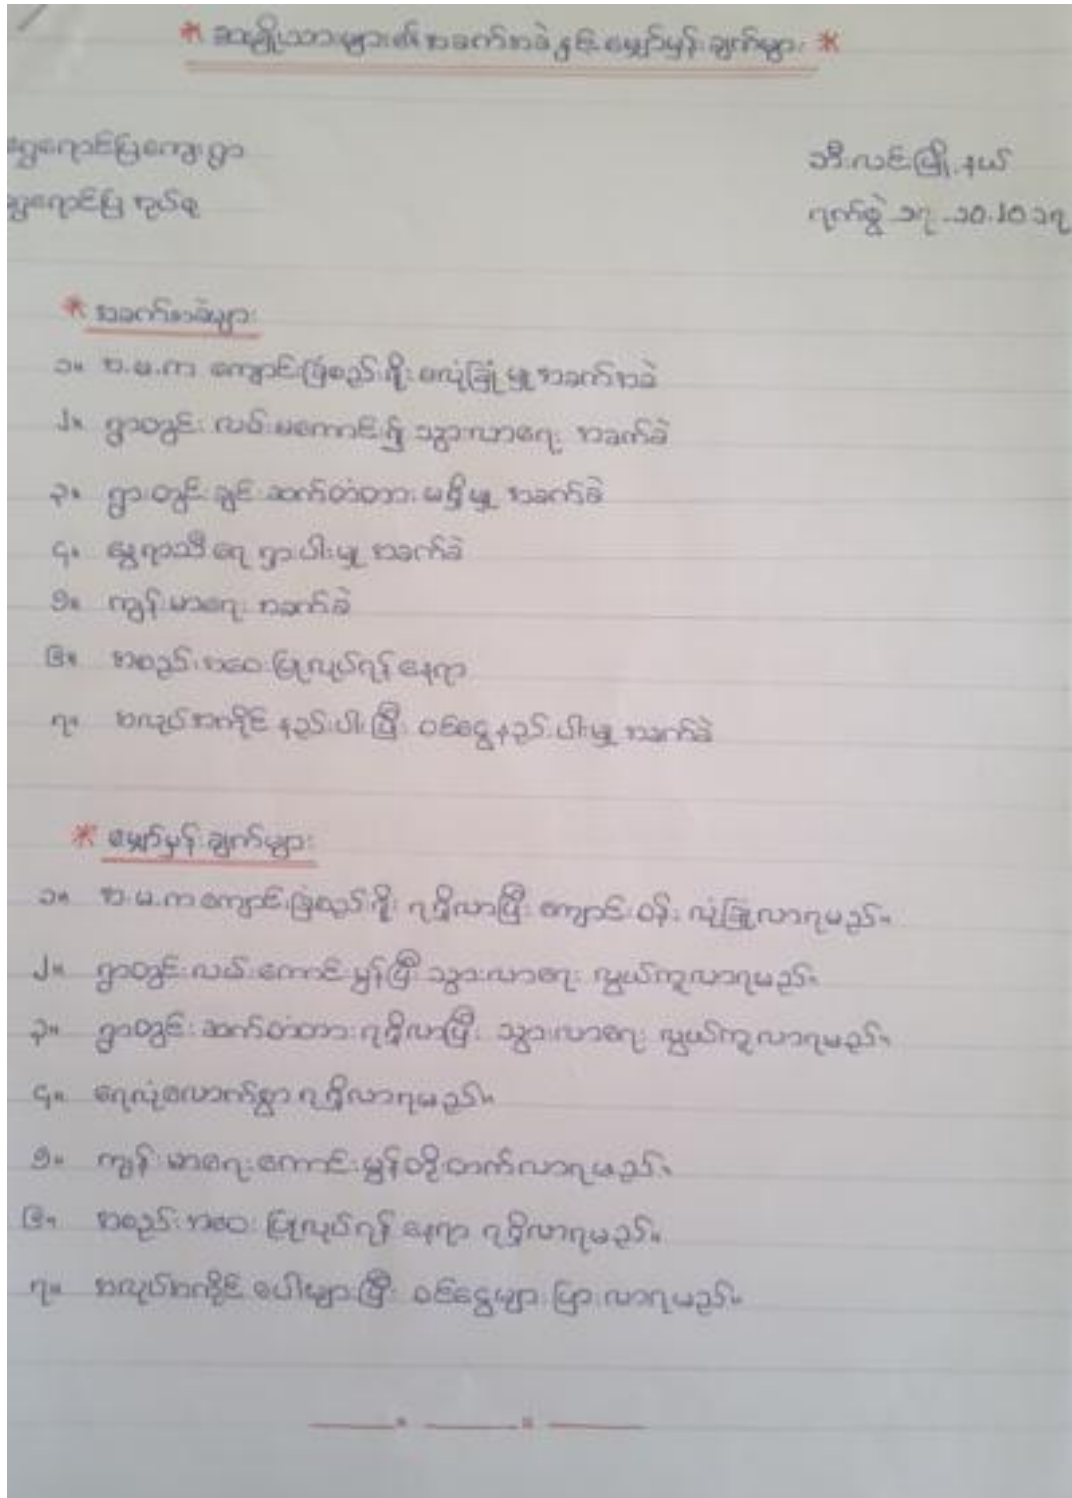 * အမျိုးသားများ၏အခက်အခဲနှင့်မျှော်မှန်းချက်များ *
ရွှေရောင်ပြကျေးရွာ
ဘီးလင်းမြို့နယ်
ရွှေရောင်ပြ အုပ်စု
ရက်စွဲ ၁၇.၁၀.၂၀၁၇
* အခက်အခဲများ
၁။ အ.မ.က ကျောင်းခြံစည်းရိုး မလုံခြုံမှု အခက်အခဲ
၂။ ရွာတွင်း လမ်းမကောင်း၍ သွားလာရေး အခက်ခဲ
၃။ ရွာတွင်းချင်းဆက်တံတား မရှိမှု အခက်ခဲ
၄။ နွေရာသီ ရေ ရှားပါးမှု အခက်ခဲ
၅။ ကျန်းမာရေး အခက်ခဲ
၆။ အစည်းအဝေးပြုလုပ်ရန် နေရာ
၇။ အလုပ်အကိုင် နည်းပါးပြီး ဝင်ငွေနည်းပါးမှု အခက်ခဲ
* မျှော်မှန်းချက်များ
၁။ အ.မ.ကကျောင်းခြံစည်းရိုး ရရှိလာပြီး ကျောင်းဝန်း လုံခြုံလာရမည်။
၂။ ရွာတွင်းလမ်းကောင်းမွန်ပြီး သွားလာရေး လွယ်ကူလာရမည်။
၃။ ရွာတွင်းဆက်တံတားရရှိလာပြီး သွားလာရေး လွယ်ကူလာရမည်။
၄။ ရေလုံလောက်စွာ ရရှိလာရမည်။
၅။ ကျန်းမာရေးကောင်းမွန်တိုးတက်လာရမည်။
၆။ အစည်းအဝေးပြုလုပ်ရန် နေရာ ရရှိလာရမည်။
၇။ အလုပ်အကိုင် ပေါများပြီး ဝင်ငွေများပြားလာရမည်။